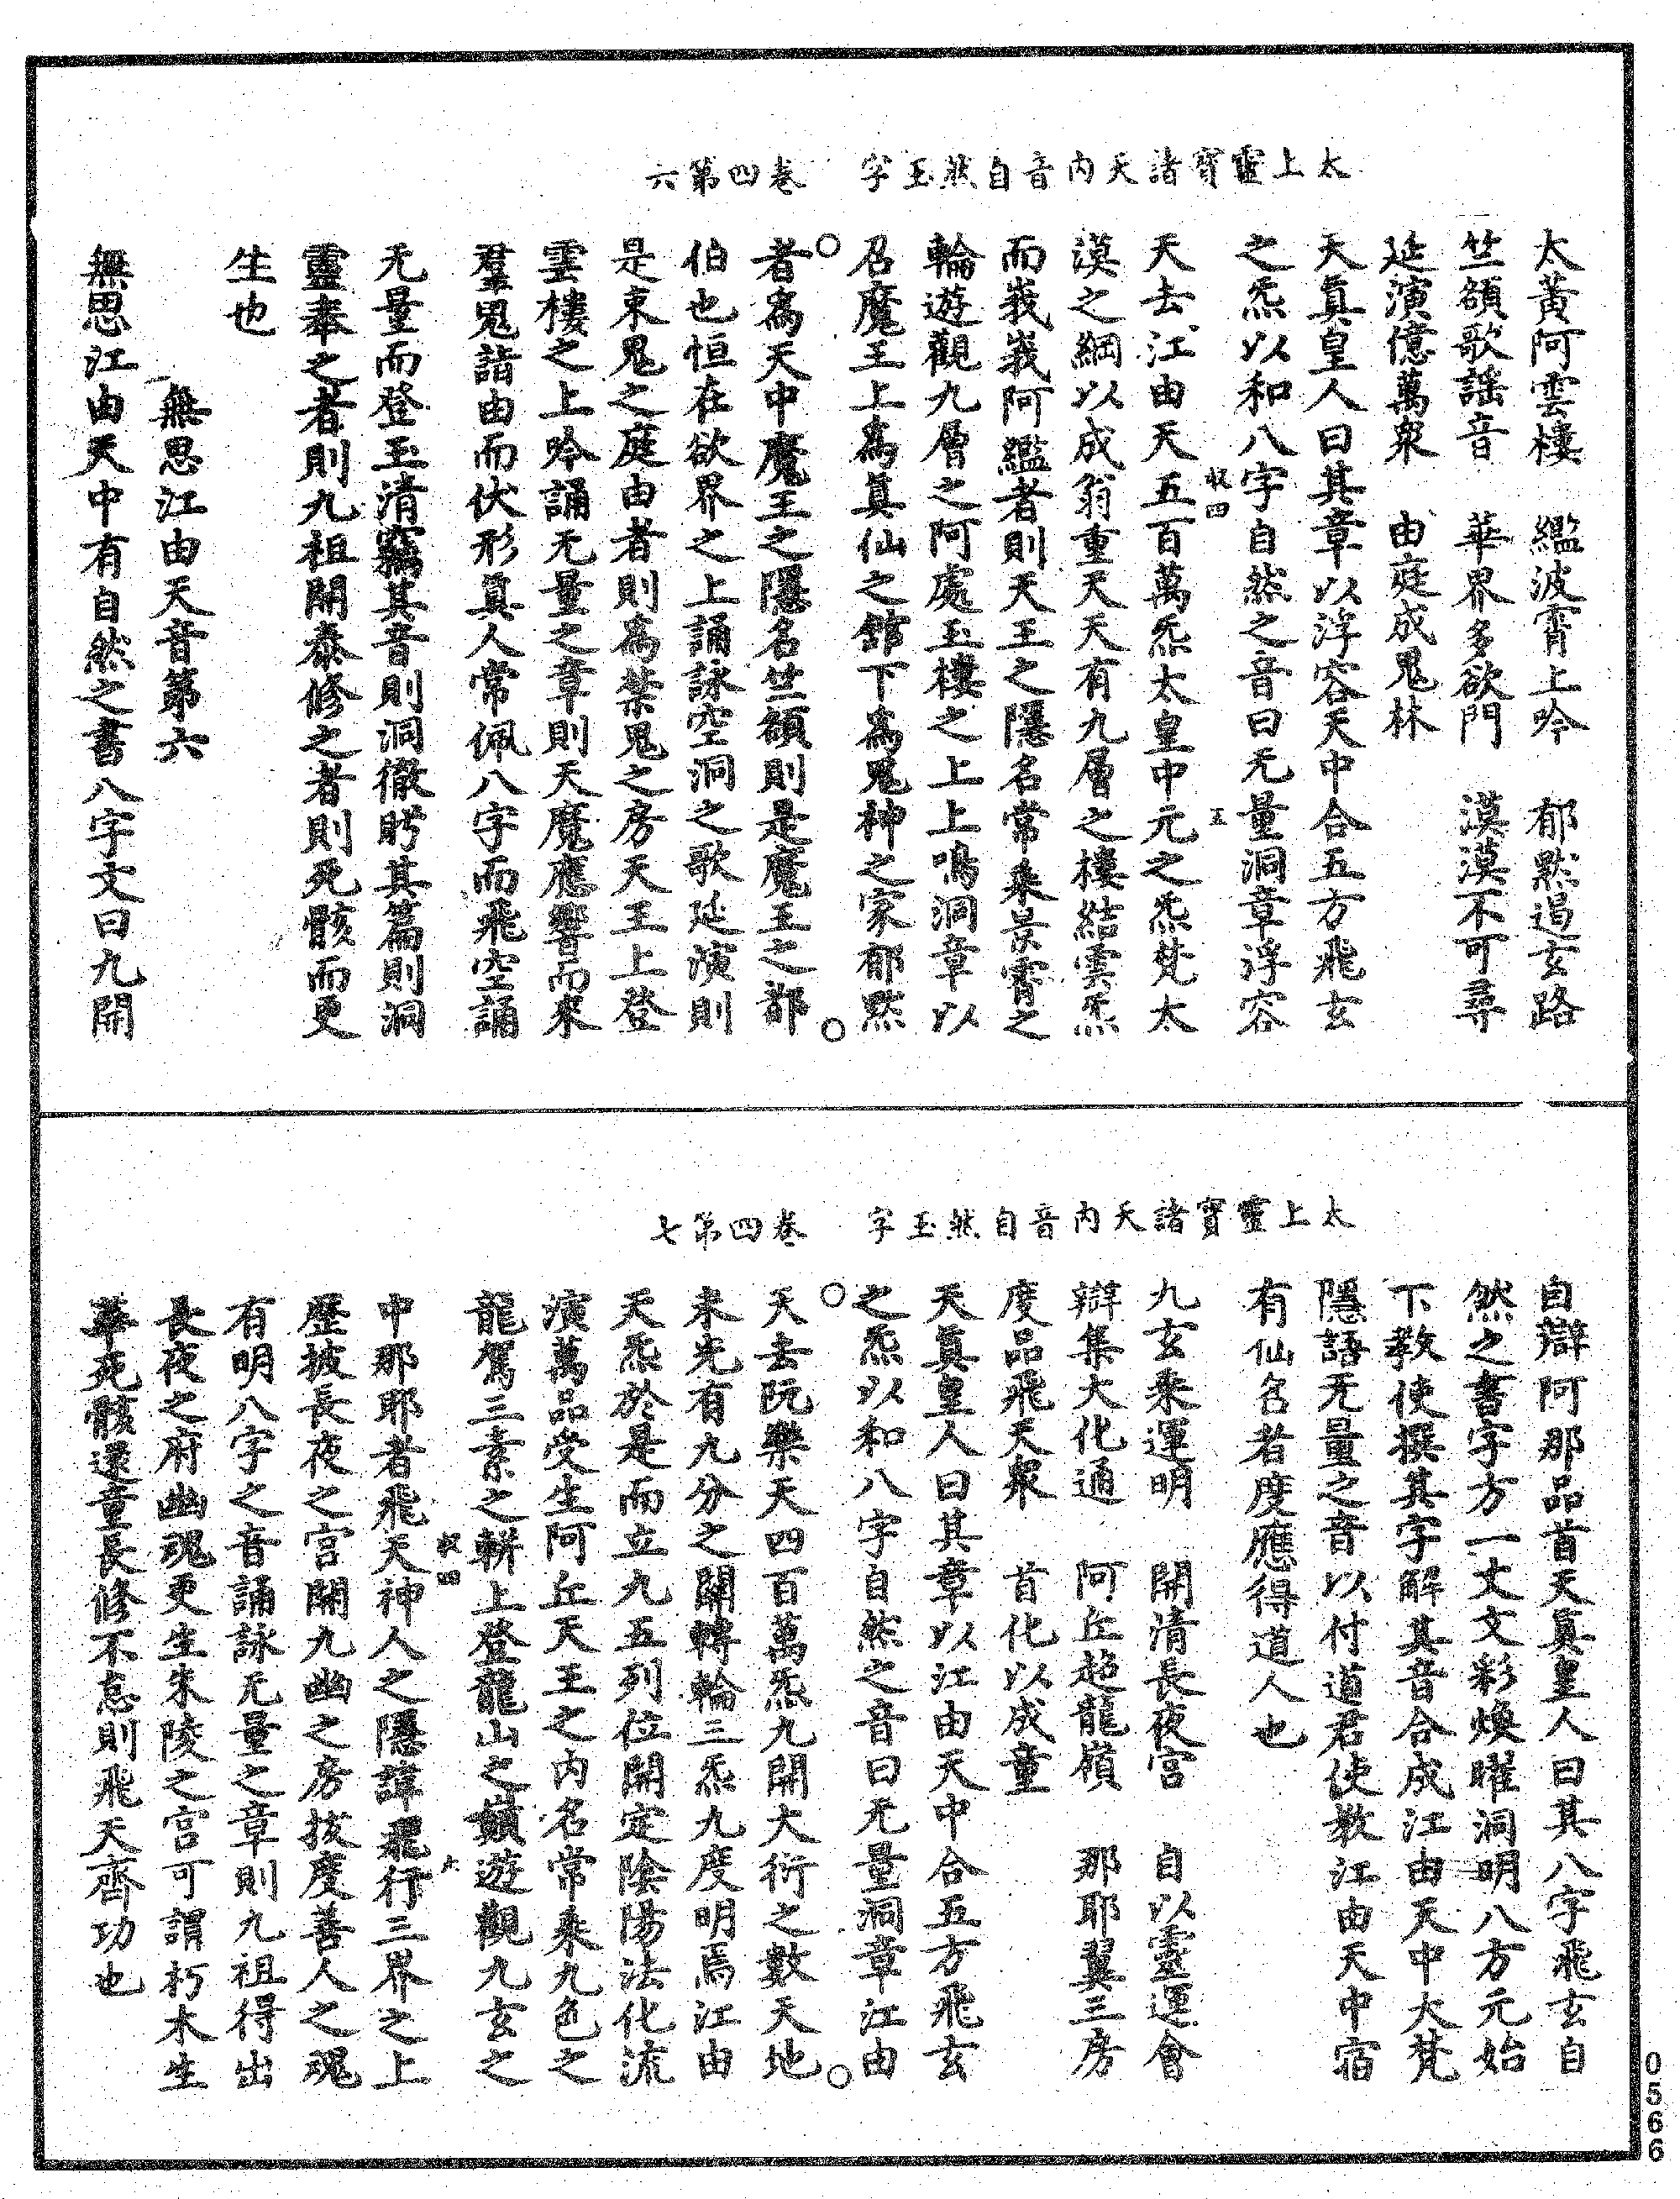 太上靈寶諸天內音自然玉字　卷四第六
太黃阿雲樓　㡮波霄上吟　郁默遏玄路
竺頟歌謠音　華界多欲門　漠漠不可尋
延演億萬衆　由庭成鬼林
天眞皇人曰其章以浮容天中合五方飛玄
之炁以和八字自然之音曰无量洞章浮容
馭四　五
天去江由天五百萬炁太皇中元之炁梵太
漠之綱以成翁重天天有九層之樓結雲炁
而峩峩阿㡮者則天王之隱名常乘景霄之
輪遊觀九層之阿處玉樓之上上鳴洞章以
召魔王上爲眞仙之館下爲鬼神之家郁默
者爲天中魔王之隱名竺頟則是魔王之都
伯也恒在欲界之上誦詠空洞之歌延演則
是束鬼之庭由者則爲禁鬼之房天王上登
雲樓之上吟誦无量之章則天魔應響而來
羣鬼詣由而伏形眞人常佩八字而飛空誦
无量而登玉清竊其音則洞徹眄其篇則洞
靈奉之者則九祖開泰修之者則死骸而更
生也
無思江由天音第六
無思江由天中有自然之書八字文曰九開
太上靈寶諸天內音自然玉字　卷四第七
自辯阿那品首天眞皇人曰其八字飛玄自
然之書字方一丈文彩煥曜洞明八方元始
下教使撰其字解其音合成江由天中大梵
隱語无量之音以付道君使教江由天中宿
有仙名者度應得道人也
九玄乘運明　開清長夜宮　自以靈運會
辯集大化通　阿丘超龍嶺　那耶翼三房
度品飛天衆　首化以成童
天眞皇人曰其章以江由天中合五方飛玄
之炁以和八字自然之音曰无量洞章江由
天去阮樂天四百萬炁九開大衍之數天地
未先有九分之關轉輪三炁九度明焉江由
天炁於是而立九五列位開定陰陽法化流
演萬品受生阿丘天王之內名常乘九色之
龍駕三素之軿上登龍山之巔遊觀九玄之
馭四　六
中那耶者飛天神人之隱諱飛行三界之上
歷披長夜之宮開九幽之房拔度善人之魂
有明八字之音誦詠无量之章則九祖得出
長夜之府幽魂更生朱陵之宮可謂朽木生
華死骸還童長修不怠則飛天齊功也
0566